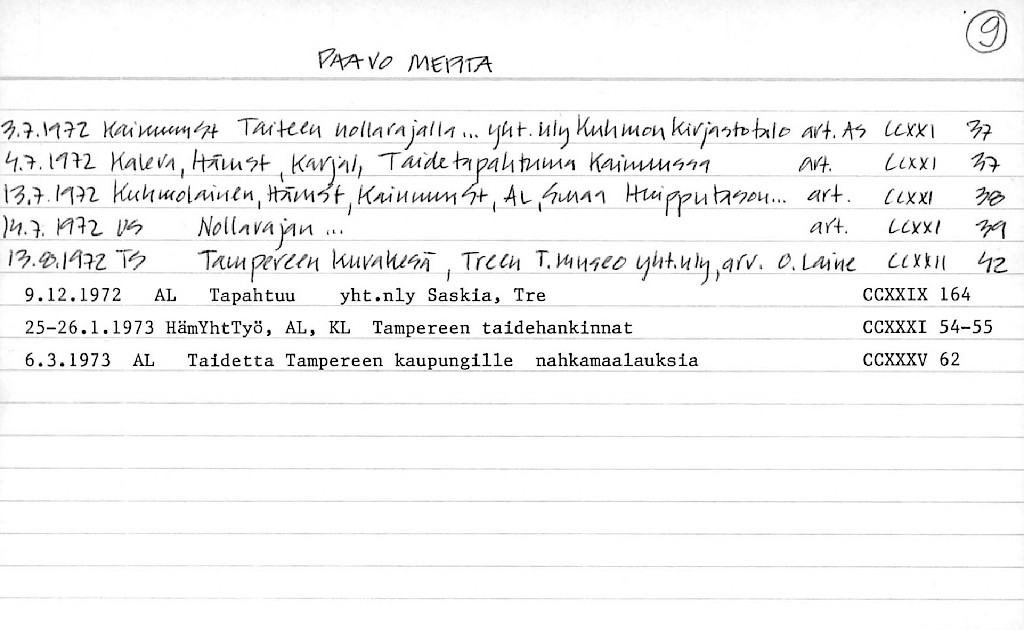 9
PAAVO MERTA
3.7.1972 Kainuunst Taiteen nollarajalla... yht.nly Kuhmon Kirjastotalo art. AS CCXXI 37
4.7.1972 Kaleva, Hämst, Karjal, Taidetapahtuma Kainuussa art. CCXXI 37
13.7.1972 Kuhmolainen, Hämst, Kainuunst, AL, Huipputason... art. CCXXI 38
14.7.1972 US Nollarajan ... art. CCXXI 39
13.8.1972 TS Tampereen kuvakesä, Treen T.museo yht.nly, arv. O. Laine CCXXII 42
9.12.1972 AL Tapahtuu yht.nly Saskia, Tre CCXXIX 164
25-26.1.1973 HämYhtTyö, AL, KL Tampereen taidehankinnat CCXXXI 54-55
6.3.1973 AL Taidetta Tampereen kaupungille nahkamaalauksia CCXXXV 62